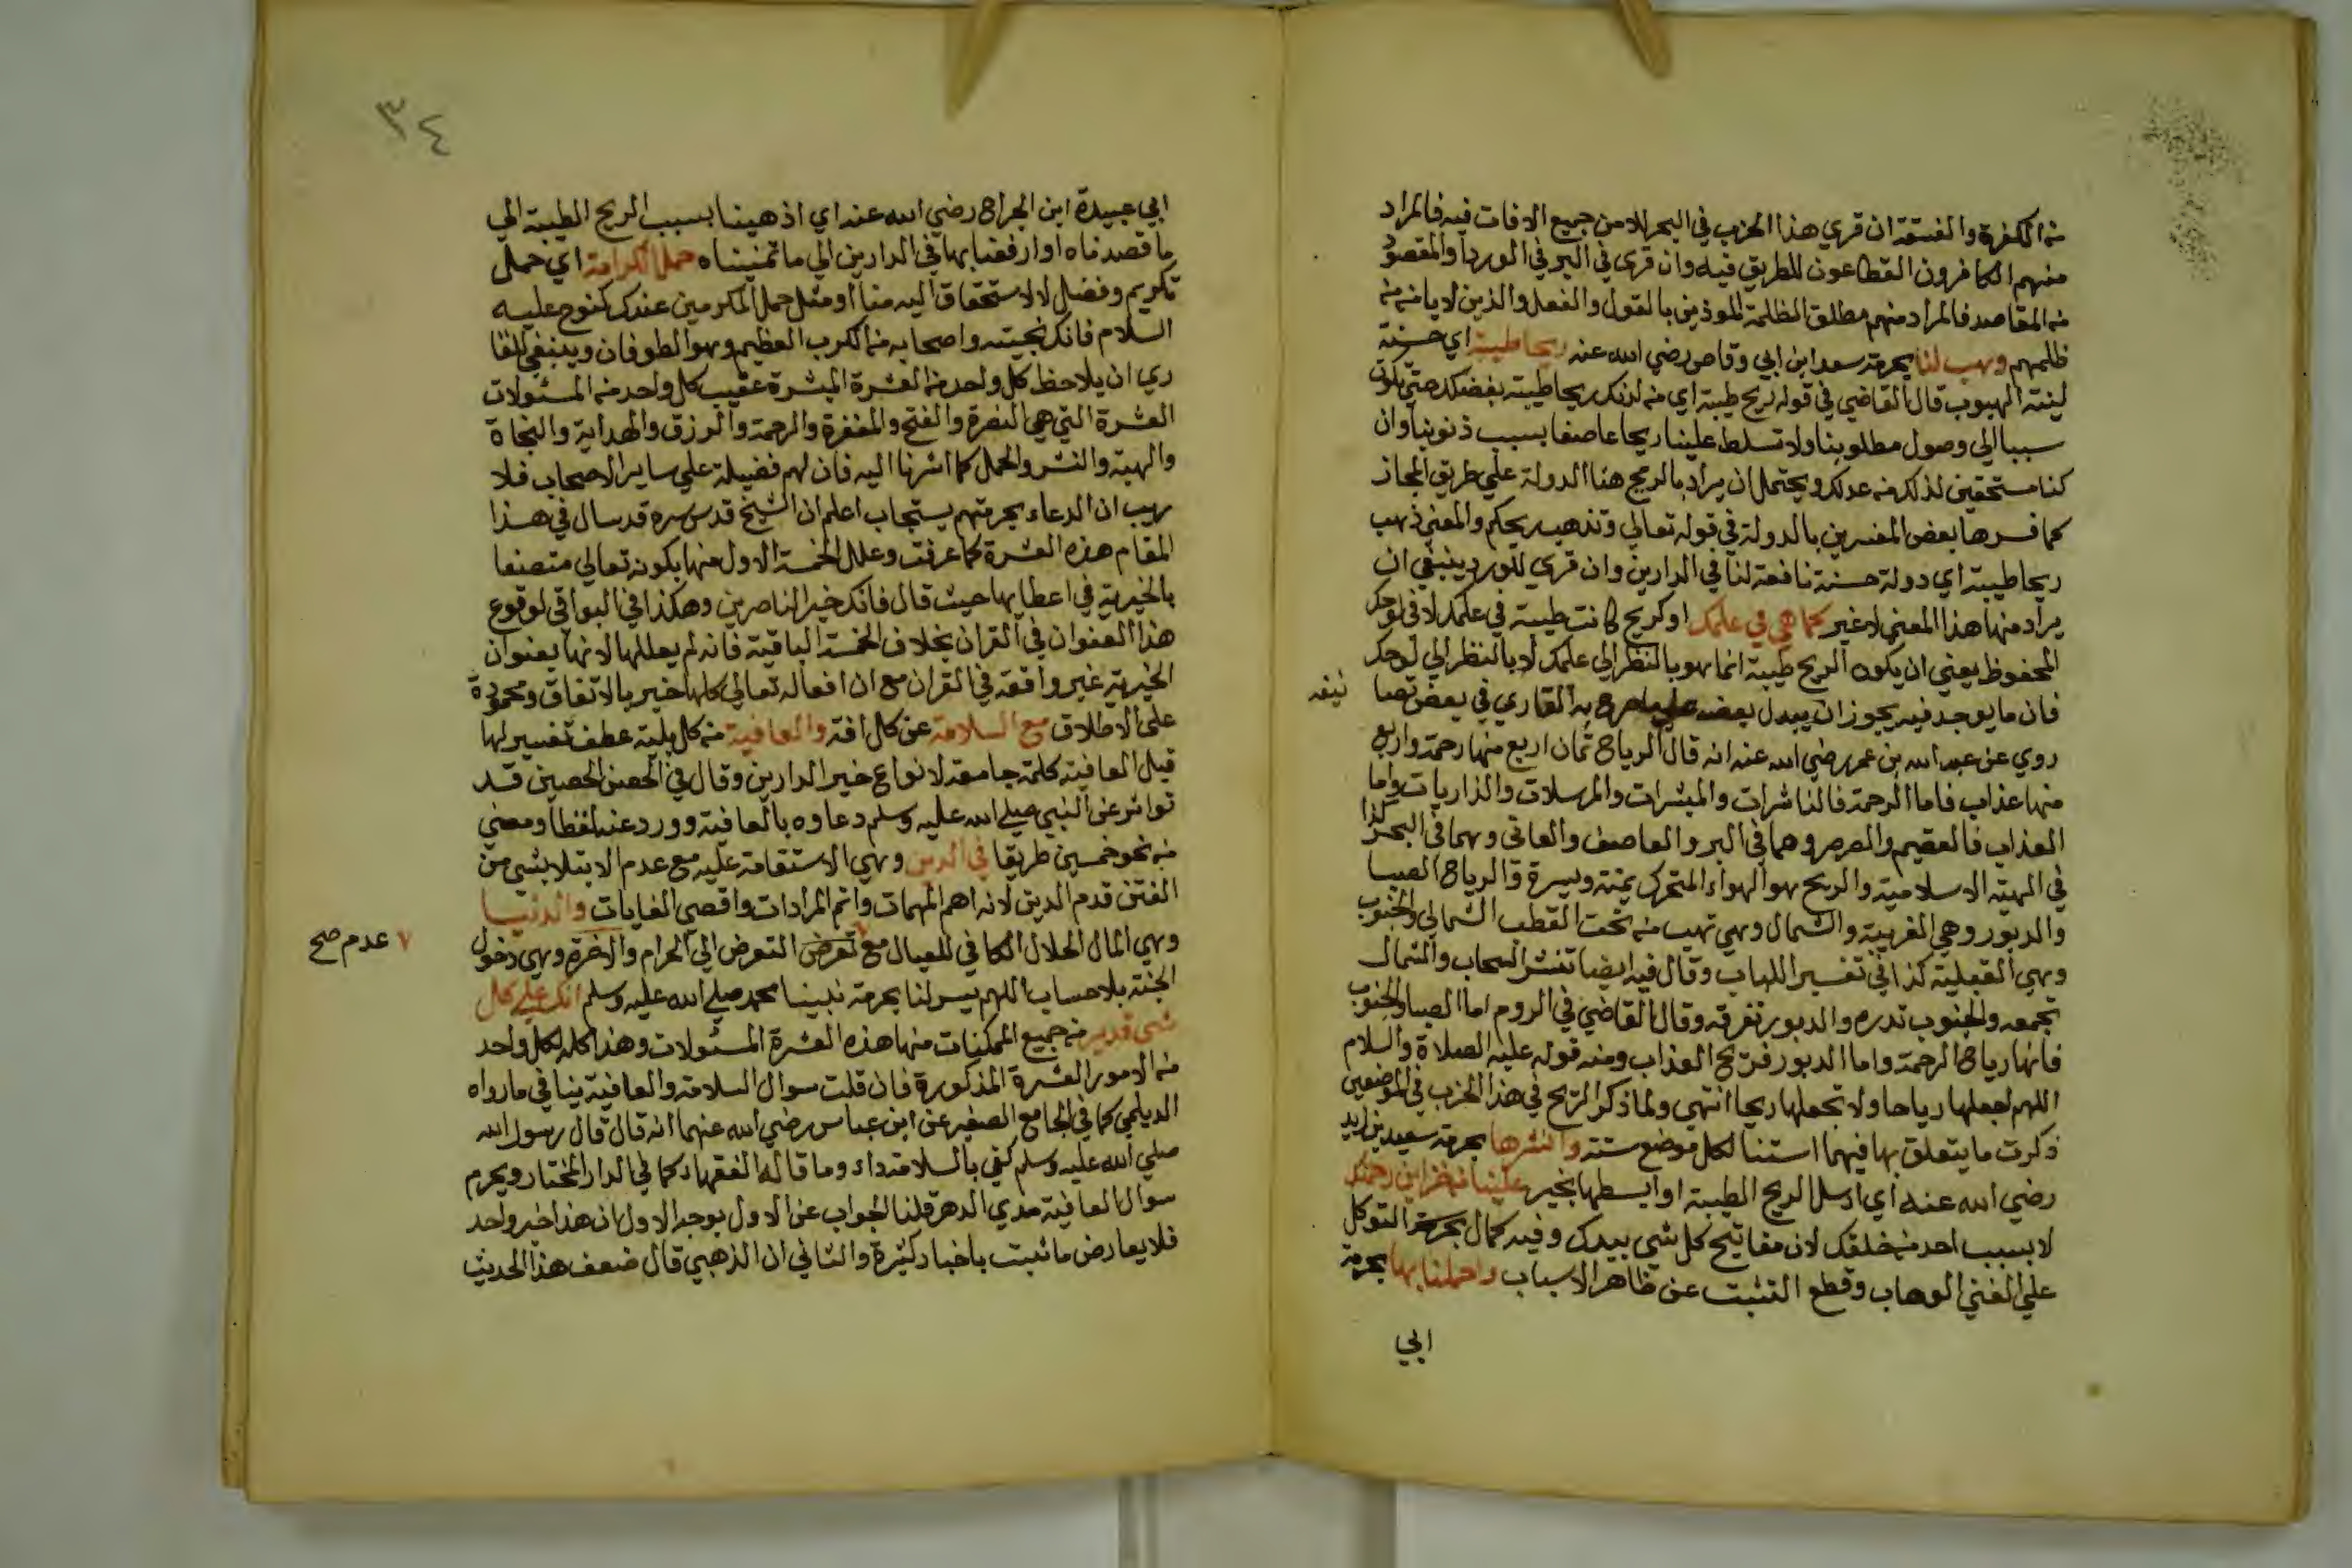 من الكفرة والفسقة ان قري هذا الحزب في البحر للامن جميع الافات فيه فالمراد
منهم الكافرون القطاعون للطريق فيه وان قرى في البر في الورد والمقصود
من المقاصد فالمراد منهم مطلق الظلمة الموذين بالقول والفعل والذين لا يامنون من
ظلمهم وهب لنا بحرمة سعد ابن ابي وقاص رضي الله عنه ريحا طيبة اي حسنة
لينة الهبوب قال القاضي في قوله ريح طيبة اي من لدنك ريحا طيبة بفضلك حتي تكون
سببا الي وصول مطلوبنا ولا تسلط علينا ريحا عاصفا بسبب ذنوبنا وان
كنا مستحقين لذلك من عدلك ويحتمل ان يراد بالريح هنا الدولة علي طريق المجاز
كما فسرها بعض المفسرين بالدولة في قوله تعالي وتذهب ريحكم والمعني ذهب
ريحا طيبة اي دولة حسنة نافعة لنا في الدارين وان قري للورد ينبغي ان
يراد منها هذا المعني لا غير كما هي في علمك او كريح كانت طيبة في علمك لا في لوحك
المحفوظ يعني ان يكون الريح طيبة انما هو بالنظر الي علمك لا بالنظر الي لوحك
فان ما يوجد فيه يجوز ان يبدل بعضه صرح به القاري في بعض تصا
نيفه
روي عن عبد الله بن عمر رضي الله عنه انه قال الرياح ثمان اربع منها رحمة واربع
منها عذاب فاما الرحمة فالناشرات والمبشرات والمرسلات والذاريات واما
العذاب فالعقيم والصرصر وهما في البر والعاصف والعاتي وهما في البحر كذا
في الهيئة الاسلامية والريح هو الهواء المتحرك يمنة ويسرة والرياح الصبا
والدبور وهي الغربية والشمال وهي تهب من تحت القطب الشمالي والجنوب
وهي القبلية كذا في تفسير اللباب وقال فيه ايضا تنشر السحاب والشمال
تجمعه والجنوب تدره والدبور تفرقه وقال القاضي في الروم اما الصبا والجنوب
فانها رياح الرحمة واما الدبور فريح العذاب ومنه قوله عليه الصلاة والسلام
اللهم اجعلها رياحا ولا تجعلها ريحا انتهي ولما ذكر الريح في هذا الحزب في الموضعين
ذكرت ما يتعلق بها فيهما استنا لكل موضع ستة وانشرها بحرمة سعيد بن زيد
رضي الله عنه اي ارسل الريح الطيبة او ابسطها بخير علينا من خزاين رحمتك
لا بسبب احد من خلقك لان مفاتيح كل شي بيدك وفيه كمال التوكل
علي الغني الوهاب وقطع التشبث عن ظاهر الاسباب واحملنا بها بحرمة
ابي
٣٤
ابي عبيدة ابن الجراح رضي الله عنه اي اذهبنا بسبب الريح الطيبة الي
ما قصدناه او ارفعنا بها في الدارين الي ما تمنيناه حمل الكرامة اي حمل
تكريم وفضل لا لاستحقاق اليه منا او مثل حمل المكرمين عندك كنوح عليه
السلام فانك نجيته واصحابه من الكرب العظيم وهو الطوفان وينبغي للقا
ري ان يلاحظ كل واحد من العشرة المبشرة عقيب كل واحد من المسئولات
العشرة التي هي النصرة والفتح والمغفرة والرحمة والرزق والهداية والنجاة
والهبة والنشر والحمل كما اشرنا اليه فان لهم فضيلة علي ساير الاصحاب فلا
ريب ان الدعاء بحرمتهم يستجاب اعلم ان الشيخ قدس سره قد سال في هذا
المقام هذه العشرة كما عرفت وعلل الخمسة الاول منها بكونه تعالي متصفا
بالخيرية في اعطايها حيث قال فانك خير الناصرين وهكذا في البواقي لوقوع
هذا العنوان في القران بخلاف الخمسة الباقية فانه لم يعللها لانها بعنوان
الخيرية غير واقعة في القران مع ان افعاله تعالي كلها خير بالاتفاق ومحمودة
على الاطلاق مع السلامة عن كل افة والعافية من كل بلية عطف تفسير لها
قيل العافية كلمة جامعة لانواع خير الدارين وقال في الحصن الحصين قد
تواتر عن النبي صلي الله عليه وسلم دعاوه بالعافية وورد عنه لفظا ومعني
من نحو خمسين طريقا في الدين وهي الاستقامة عليه مع عدم الابتلا بشي من
الفتن قدم الدين لانه اهم المهمات واتم المرادات واقصي الغايات والدنيا
وهي المال الحلال الكافي للعيال مع تعرض التعرض الي الحرام والاخرة وهي دخول
٧ عدم صح
الجنة بلا حساب اللهم يسر لنا بحرمة نبينا محمد صلي الله عليه وسلم انك علي كل
شي قدير من جميع الممكنات منها هذه العشرة المسئولات وهذا كله لكل واحد
من الامور العشرة المذكورة فان قلت سوال السلامة والعافية ينافي ما رواه
الديلمي كما في الجامع الصغير عن ابن عباس رضي الله عنهما انه قال قال رسول الله
صلي الله عليه وسلم كفي بالسلامة داء وما قاله الفقهاء كما في الدار المختار ويحرم
سوال العافية مدي الدهر قلنا الجواب عن الاول بوجه الاول ان هذا خبر واحد
فلا يعارض ما ثبت باخبار كثيرة والثاني ان الذهبي قال ضعف هذا الحديث